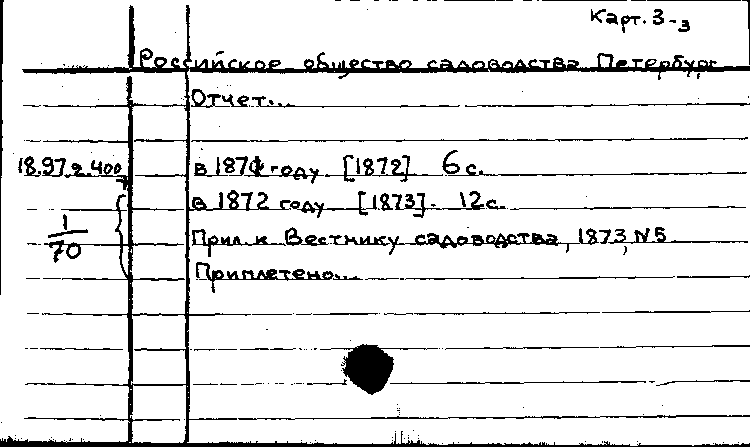 Карт. 3-3
Российское общество садоводства. Петербург
Отчет...
18.97.2.400 в 1871 году. [1872] 6 с.
в 1872 году [1873]. 12 с.
1/70
Прил. к Вестнику садоводства, 1873, N5
Приплетено...